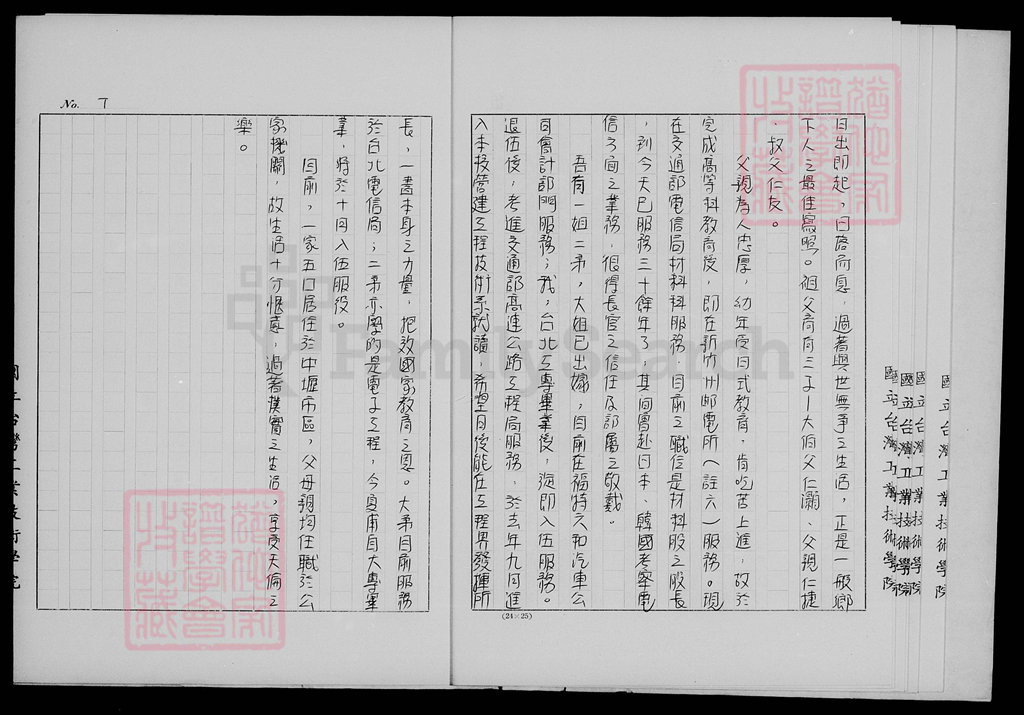 日出即起，日落而息，過著與世無爭之生活，正是一般鄉
下人之最佳寫照。祖父育有三子—大伯父仁灝、父親仁捷
、叔父仁友。
父親為人忠厚，幼年受日式教育，肯吃苦上進，故於
完成高等科教育後，即在新竹州郵電所（註六）服務。現
在交通部電信局材料科服務，目前之職位是材料股之股長
，到今天已服務三十餘年了，其間曾赴日本、韓國考察電
信方面之業務，很得長官之信任及部屬之敬戴。
吾有一姐二弟，大姐已出嫁，目前在福特六和汽車公
司會計部門服務；我，台北工專畢業後，旋即入伍服務。
退伍後，考進交通部高速公路工程局服務，於去年九月進
入本校營建工程技術系就讀，希望日後能在工程界發揮所
No. 7
長，一盡本身之力量，把效國家教育之恩。大弟目前服務
於台北電信局；二弟亦學的是電子工程，今夏甫自大專畢
業，將於十月入伍服役。
目前，一家五口居住於中壢市區，父母親均任職於公
家機關，故生活十分愜意，過著樸實之生活，享受天倫之
樂。
(24×25)
國立台灣工業技術學院
國立台灣工業技術學院
國立台灣工業技術學院
國立台灣工業技術學院
國立台灣工業技術學院
FamilySearch